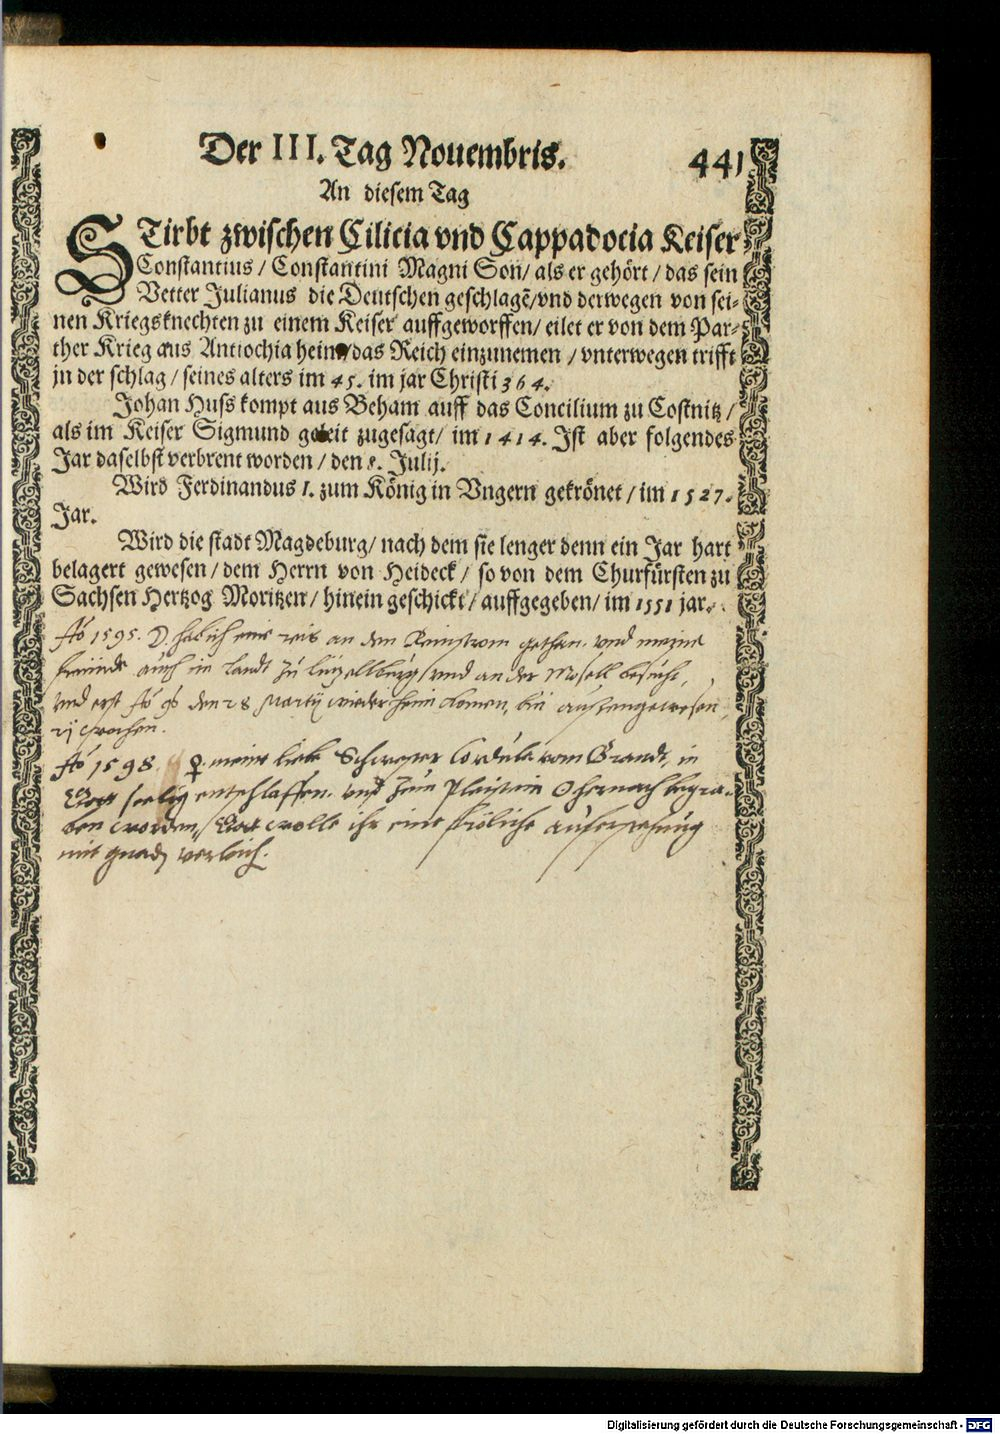 Der III. Tag Nouembris. 441
An diesem Tag
STirbt zwischen Cilicia vnd Cappadocia Keiser
Constantius / Constantini Magni Son / als er gehört / das sein
Vetter Julianus die Deutschen geschlagē / vnd derwegen von sei-
nen Kriegsknechten zu einem Keiser auffgeworffen / eilet er von dem Par-
ther Krieg aus Antiochia heim / das Reich einzunemen / vnterwegen trifft
jn der schlag / seines alters im 45. im jar Christi 364.
Johan Huss kompt aus Beham auff das Concilium zu Costnitz /
als im Keiser Sigmund geleit zugesagt / im 1414. Ist aber folgendes
Jar daselbst verbrent worden / den 8. Julij.
Wird Ferdinandus I. zum König in Vngern gekrönet / im 1527.
Jar.
Wird die stadt Magdeburg / nach dem sie lenger denn ein Jar hart
belagert gewesen / dem Herrn von Heideck / so von dem Churfürsten zu
Sachsen Hertzog Moritzen / hinein geschickt / auffgegeben / im 1551 jar.
Aō 1595. D. hab ich eine reis an den Reinstrom gethan. vnd meine
freunde auch in Landt zu Lützellburg / vnd an der Mosell besucht,
vnd erst Aō 96 den 28 Martij wieder heim komen, bin aussengewesen
21 wochen.
Aō 1598. ♀. meine liebe Schwester Cordula vom Brandt, in
Gott seelig entschlaffen. vnd zum begra-
ben worden, / Gott wolle ihr eine fröliche aufferstehung
mit gnad verleih.
Digitalisierung gefördert durch die Deutsche Forschungsgemeinschaft - DFG